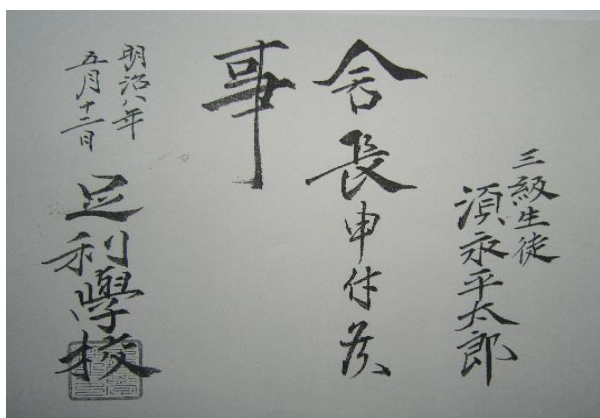 三級生徒
湏永平太郎
舎長申付候
事
明治八年
五月十二日
足利學校